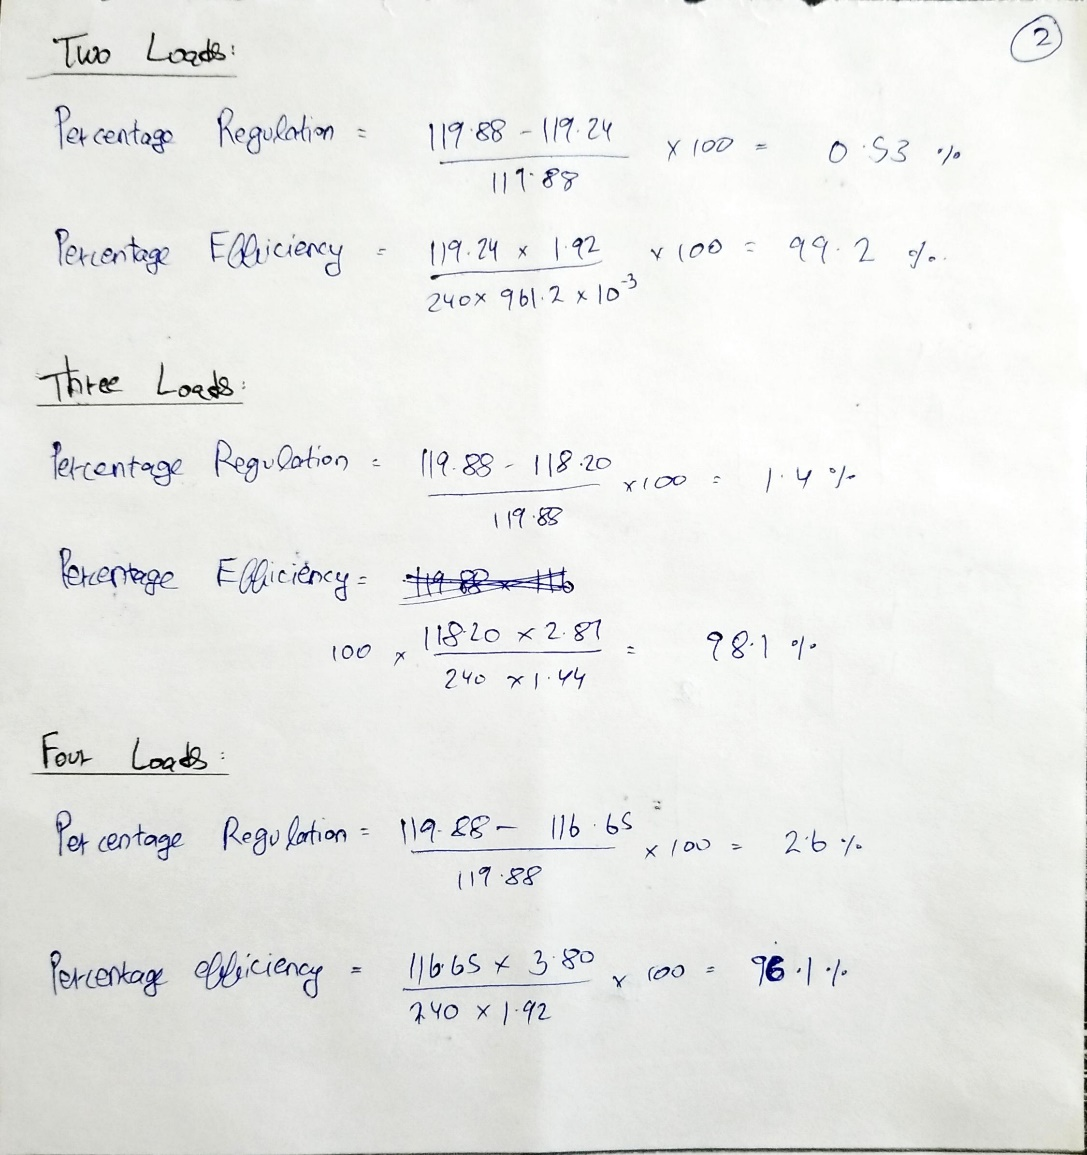 2
Two Loads:
Percentage Regulation = 119.88 - 119.24 / 119.88 × 100 = 0.53 %
Percentage Efficiency = 119.24 × 1.92 / 240 × 961.2 × 10⁻³ × 100 = 99.2 %.
Three Loads:
Percentage Regulation = 119.88 - 118.20 / 119.88 × 100 = 1.4 %
Percentage Efficiency =
100 × 118.20 × 2.87 / 240 × 1.44 = 98.1 %
Four Loads:
Percentage Regulation = 119.88 - 116.65 / 119.88 × 100 = 2.6 %
Percentage efficiency = 116.65 × 3.80 / 240 × 1.92 × 100 = 96.1 %